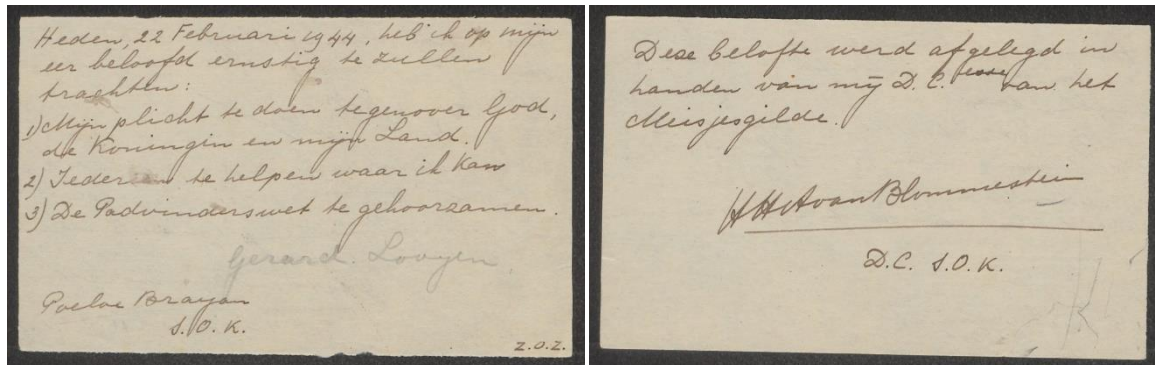 Heden, 22 Februari 1944, heb ik op mijn
eer beloofd ernstig te zullen
trachten:
1) Mijn plicht te doen tegenover God,
de Koningin en mijn Land.
2) Iedereen te helpen waar ik kan
3) De Padvinderswet te gehoorzamen.
Gerard Looyen
Poeloe Brayan
S.O.K.
z.o.z.
Deze belofte werd afgelegd in
handen van mij D.C. esse van het
Meisjesgilde.
HHA van Blommestein
D.C. S.O.K.